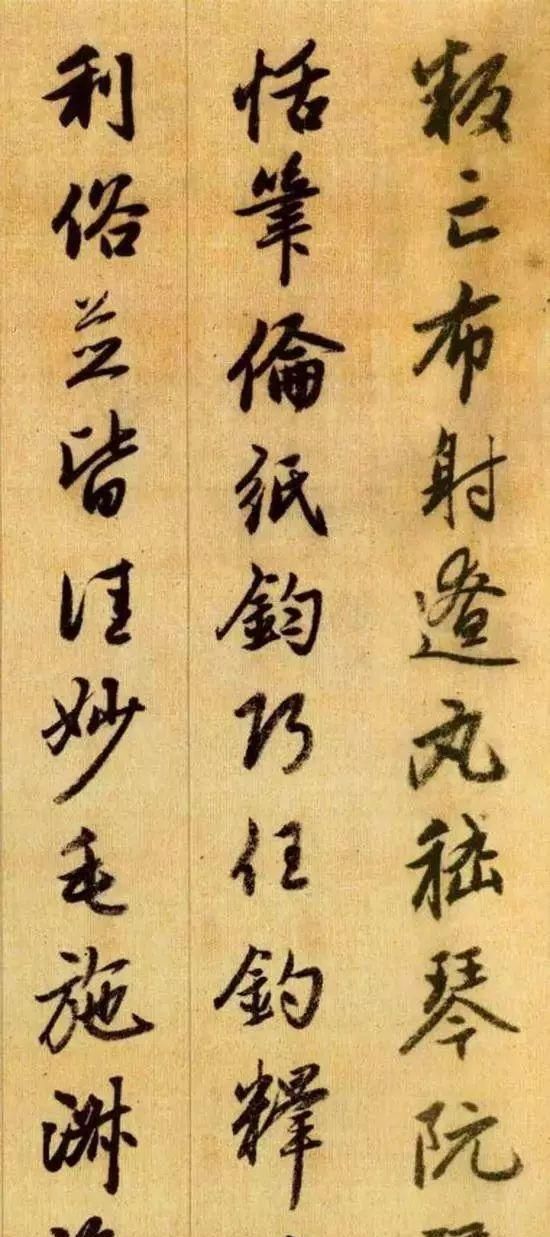 叛亡布射遼丸嵇琴阮
恬筆倫紙鈞巧任釣釋
利俗並皆佳妙毛施淑